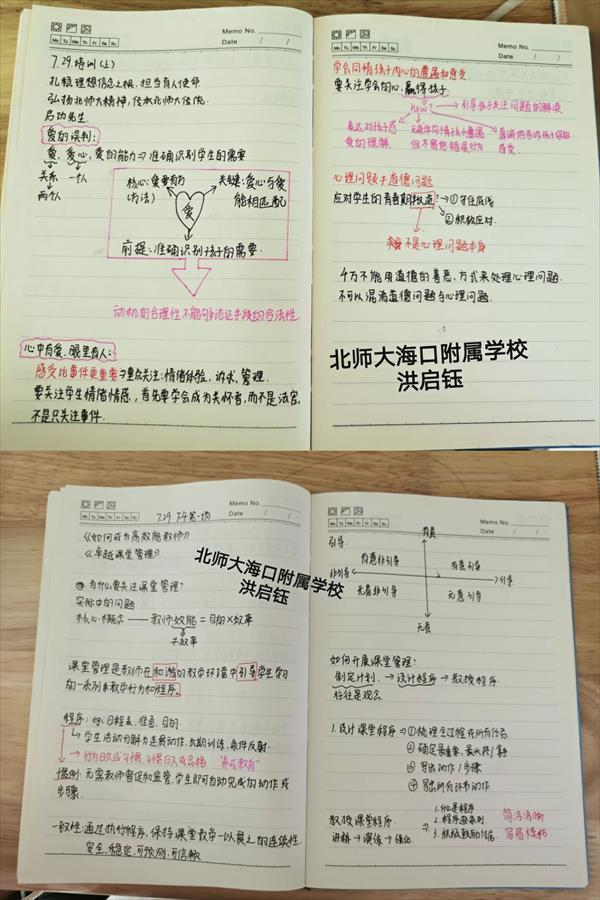 Memo No.
Mo Tu We Th Fr Sa Su
Date / /
7.29培训(上)
扎稳理想信念之根,担当育人使命
弘扬北师大精神,传承北师大传统
启功先生
爱的误判:
爱,爱心,爱的能力⇒准确识别学生的需要
关系 一个人
两个人
核心:爱要有方
(方法)
关键:爱心与爱
能相匹配
爱
前提:准确识别孩子的需要.
动机的合理性不能够论证手段的合法性.
心中有爱、眼里有人:
感受比事件更重要⇒重点关注:情绪体验、诉求、管理.
要关注学生情绪情感,首先要学会成为关怀者,而不是法官,
不是只关注事件.
Memo No.
Mo Tu We Th Fr Sa Su
Date / /
学会同情孩子内心的遭遇和感受
要关注学会的心,赢得孩子.
how?
引导孩子关注问题的解决
表达对孩子感
受的理解.
同情孩子遭遇
但不宽恕错误行为
真诚地告诉孩子你的
感受.
心理问题≠道德问题
应对学生的青春期挑逗?→①守住底线
②积极应对.
不是心理问题本身
4万不能用道德的善恶、方式来处理心理问题.
不可以混淆道德问题与心理问题.
北师大海口附属学校
洪启钰
Memo No.
Mo Tu We Th Fr Sa Su
Date / /
7.29 下午第一项
《如何成为高效能教师》
《卓越课堂管理》
北师大海口附属学校
洪启钰
为什么要关注课堂管理?
实际中的问题
核心概念——教师效能=目的×效率
≠效率
课堂管理是教师在和谐的教学环境中引导学生学习
的一系列教学行为和程序.
程序:eg.日程表、准备、目的.
学生活动分解为连贯动作,长期训练、条件反射.
→行为日久成习惯,习惯日久成品格 "养成教育"
惯例:无需教师督促和监管,学生即可自动完成的动作或
步骤.
一致性:通过执行程序,保持课堂教学一以贯之的连续性.
安全、稳定、可预测、可信赖
Memo No.
Mo Tu We Th Fr Sa Su
Date / /
引导.
有意
有意非引导
有意引导
非引导
引导
无意非引导
无意引导
无意
如何开展课堂管理:
制定计划.→设计程序→教授程序
往往是观念.
1.设计课堂程序⇒①梳理全过程或所有任务.
③写出动作/步骤
④写出所有环节动作
教授课堂程序.
讲解→演练→强化
2.程序
3.积极鼓励
简洁清晰